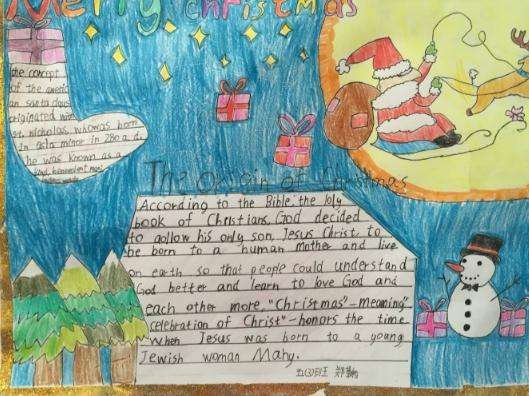 Merry christmas
the concept
of the americ
an santa claus
originated with
st. nicholas, who was born
in asia minor in 280 a.d.
he was known as a
kind, benevolent man,
The origin of Christmas
According to the Bible. the loly
book of Christians, God decided
to aollow his only son, Jesus Christ, to
be born to a human mother and live
on earth so that people could understand
God better and learn to love God and
each other more, "Christmas"-meaning"
celebration of Christ"-honors the time
when Jesus was born to a young
Jewish woman Mary.